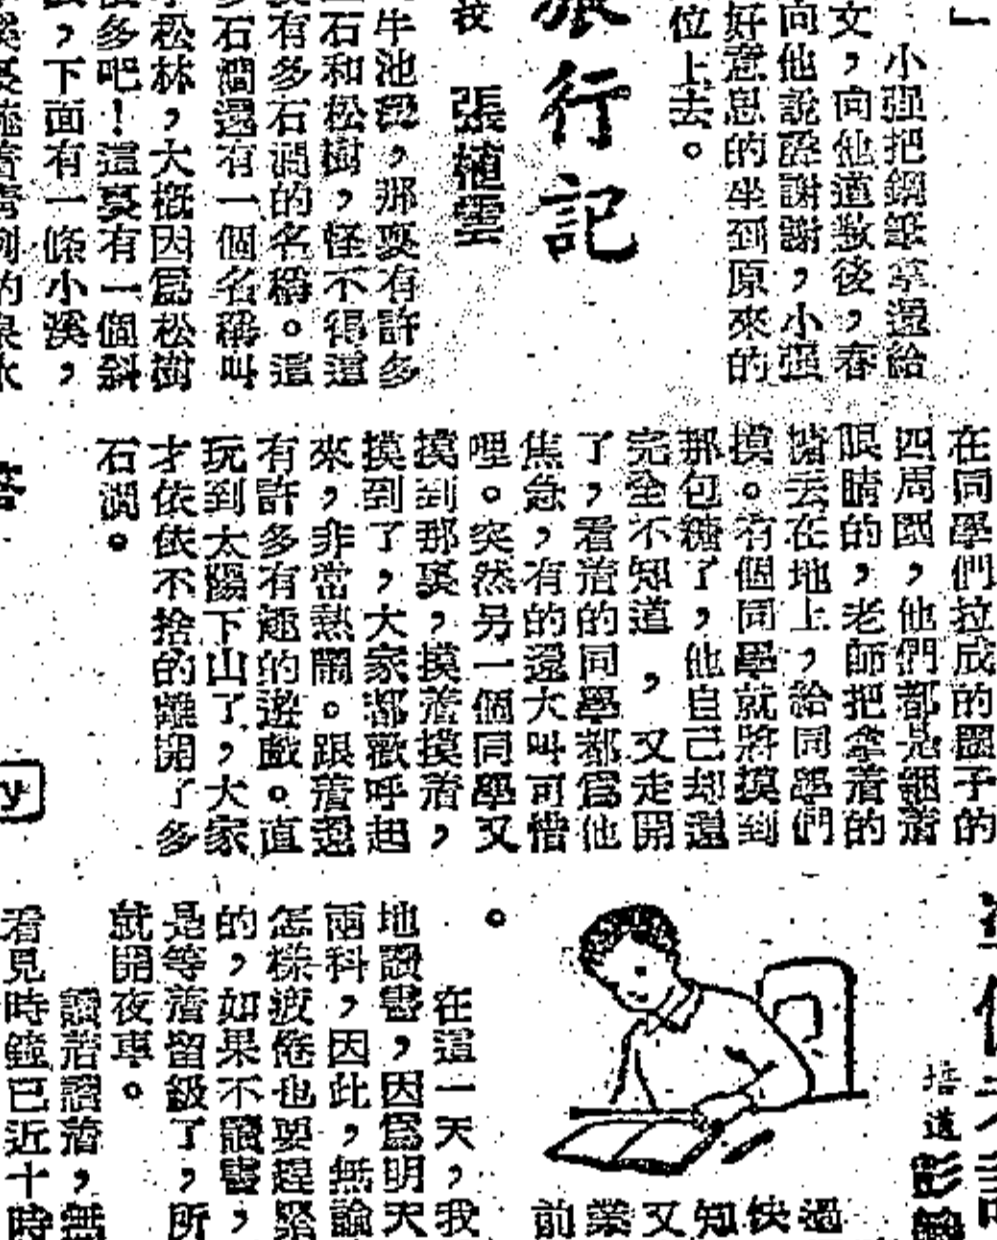 」
小强把鋼筆拿還給
文，向他道歉後，春
向他說聲謝謝，小强
好意思的坐到原來的
位上去。
旅行記
校 張植雲
牛池裏，那裏有許多
石和松樹，怪不得這
有多石澗的名稱。這
多石澗還有一個名稱叫
松林，大概因爲松樹
多吧！這裏有一個斜
，下面有一條小溪，
的泉水
在同學們拉成的圈子的
四周圍，他們都是綑着
眼睛的，老師把拿着的
糖丢在地上，給同學們
摸。有個同學就將摸到
那包糖了，他自己却還
完全不知道，又走開
了，看着的同學都爲他
焦急，有的還大叫可惜
哩。突然另一個同學又
摸到那裏，摸着摸着，
摸到了，大家都歡呼起
來，非常熱鬧。跟着還
有許多有趣的遊戲。直
玩到太陽下山了，大家
才依依不捨的離開了多
石澗。
培道
過
快
知
又
業
前
。
在這一天，我
地讀書，因爲明天
兩科，因此，無論
怎樣疲倦也要趕緊
的，如果不讀書，
是等着留級了，所
就開夜車。
讀着讀着，無
看見時鐘已近十時